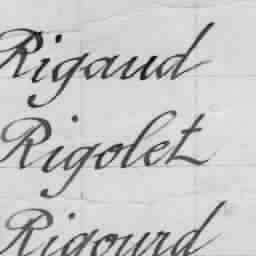 Rigaud
Rigolet
Rigourd